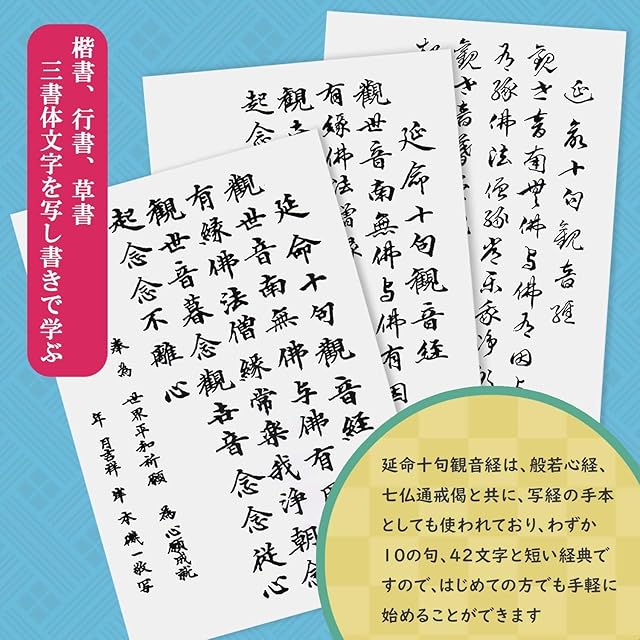 楷書、行書、草書
三書体文字を写し書きで学ぶ
延命十句觀音経
觀世音南無佛与佛有
有縁佛法僧縁常楽我淨朝念
觀世音暮念觀世音念念從心
起念念不離心
奉為 世界平和祈願 為心願成就
年 月吉祥 岸本磯一敬写
延命十句觀音経
觀世音南無佛与佛有因
有縁佛法僧縁
觀世音
起念念
延命十句観音経
観世音南無佛与佛有因与
有縁佛法僧縁常楽我浄
観世音暮念
延命十句観音経は、般若心経、
七仏通戒偈と共に、写経の手本
としても使われており、わずか
10の句、42文字と短い経典で
すので、はじめての方でも手軽に
始めることができます